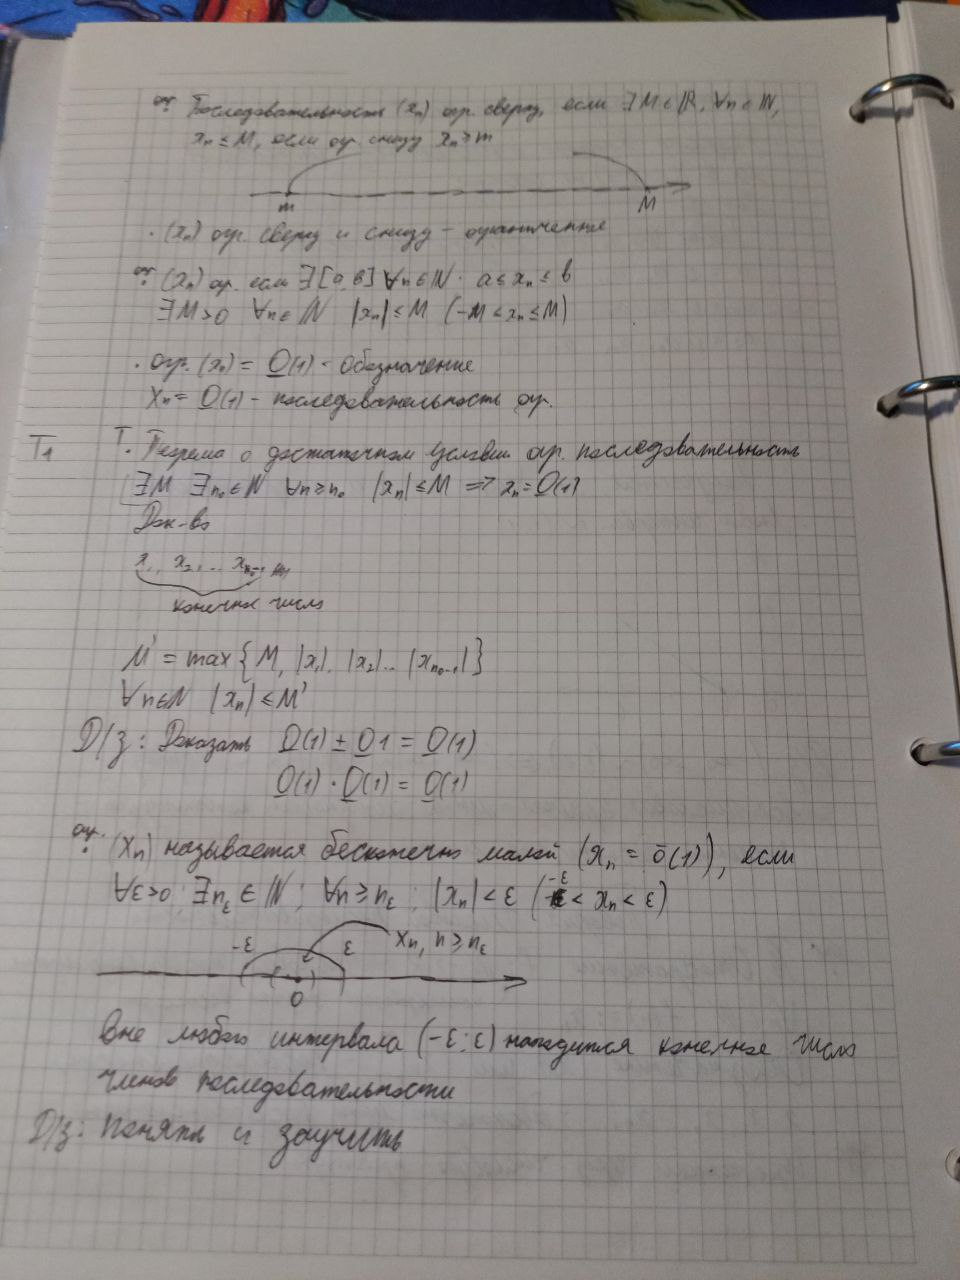 опр. Последовательность (xₙ) огр. сверху, если ∃M∈ℝ, ∀n∈ℕ,
xₙ ≤ M, если огр. снизу xₙ ≥ m
m M
· (xₙ) огр. сверху и снизу - ограниченные
опр. (xₙ) огр. если ∃[a, b] ∀n∈ℕ · a ≤ xₙ ≤ b
∃M>0 ∀n∈ℕ |xₙ| ≤ M (-M < xₙ ≤ M)
· огр. (xₙ) = O̲(1) - обозначение
xₙ = O̲(1) - последовательность огр.
T₁ Т. Теорема о достаточном условии огр. последовательность
∃M ∃n₀∈ℕ ∀n≥n₀ |xₙ| ≤ M => xₙ = O̲(1)
Док-во
x₁, x₂, ... xₙ₀₋₁
конечное число
M' = max{M, |x₁|, |x₂|... |xₙ₀₋₁|}
∀n∈ℕ |xₙ| ≤ M'
D/з: Доказать O̲(1) ± O̲1 = O̲(1)
O̲(1) · O̲(1) = O̲(1)
опр. (xₙ) называется бесконечно малой (xₙ = ō(1)), если
∀ε>0; ∃n_ε ∈ ℕ; ∀n ≥ n_ε; |xₙ| < ε (-ε < xₙ < ε)
-ε ε xₙ, n ≥ n_ε
0
Вне любого интервала (-ε; ε) находится конечное число
членов последовательности
D/з: Понять и заучить